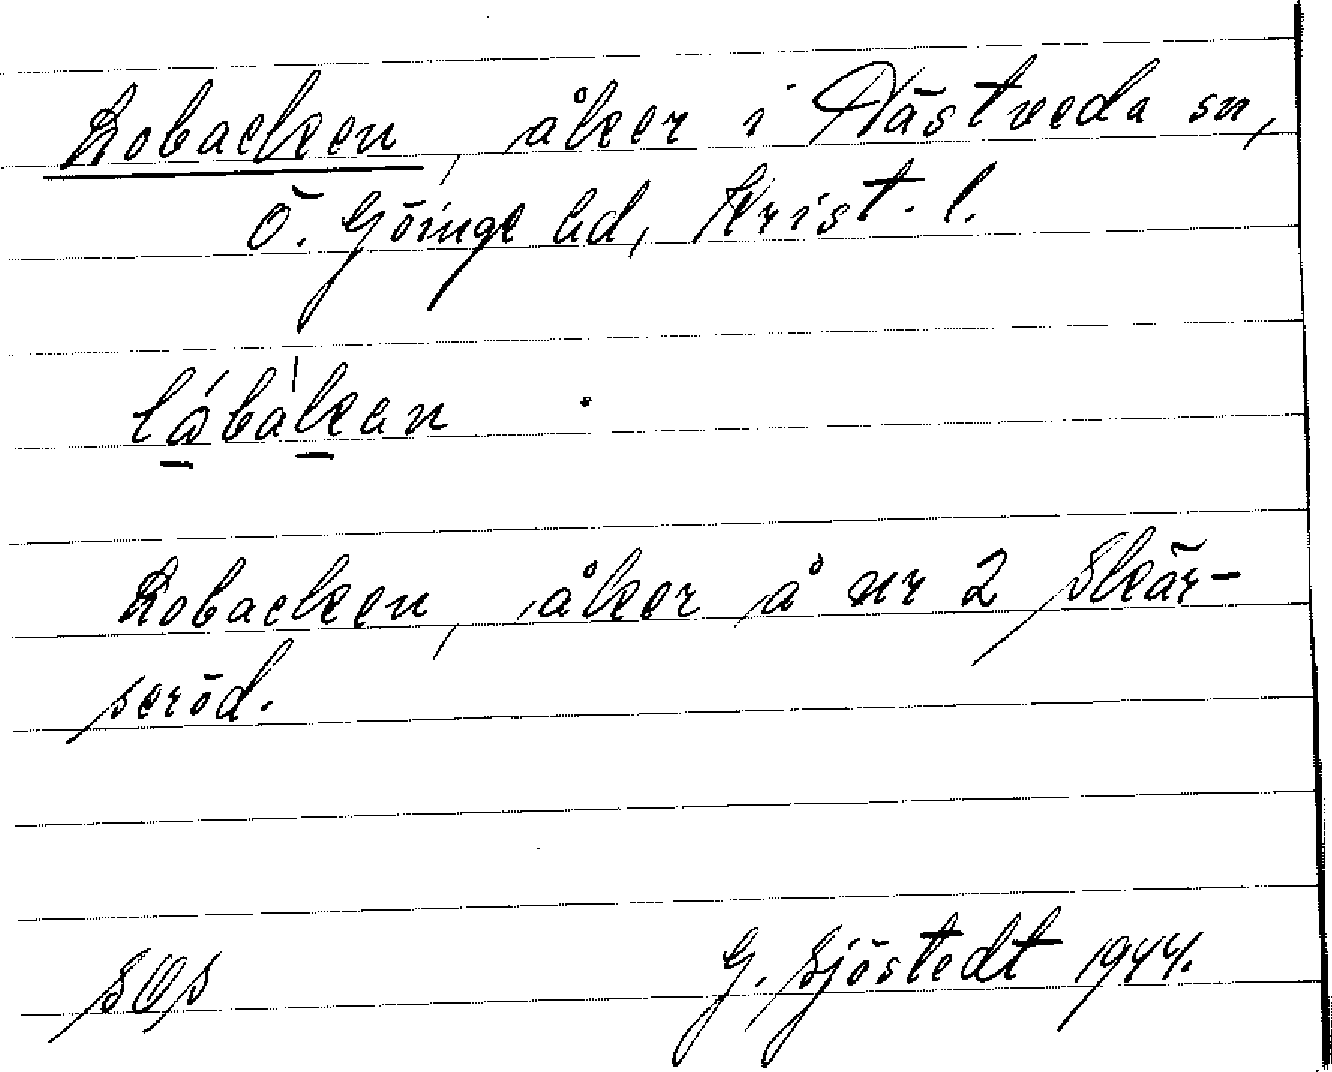 Lobacken, åker i Hästveda sn,
Ö. Göinge hd, Krist. l.
Lobacken, åker å nr 2 Skär-
seröd.
G. Sjöstedt 1944.